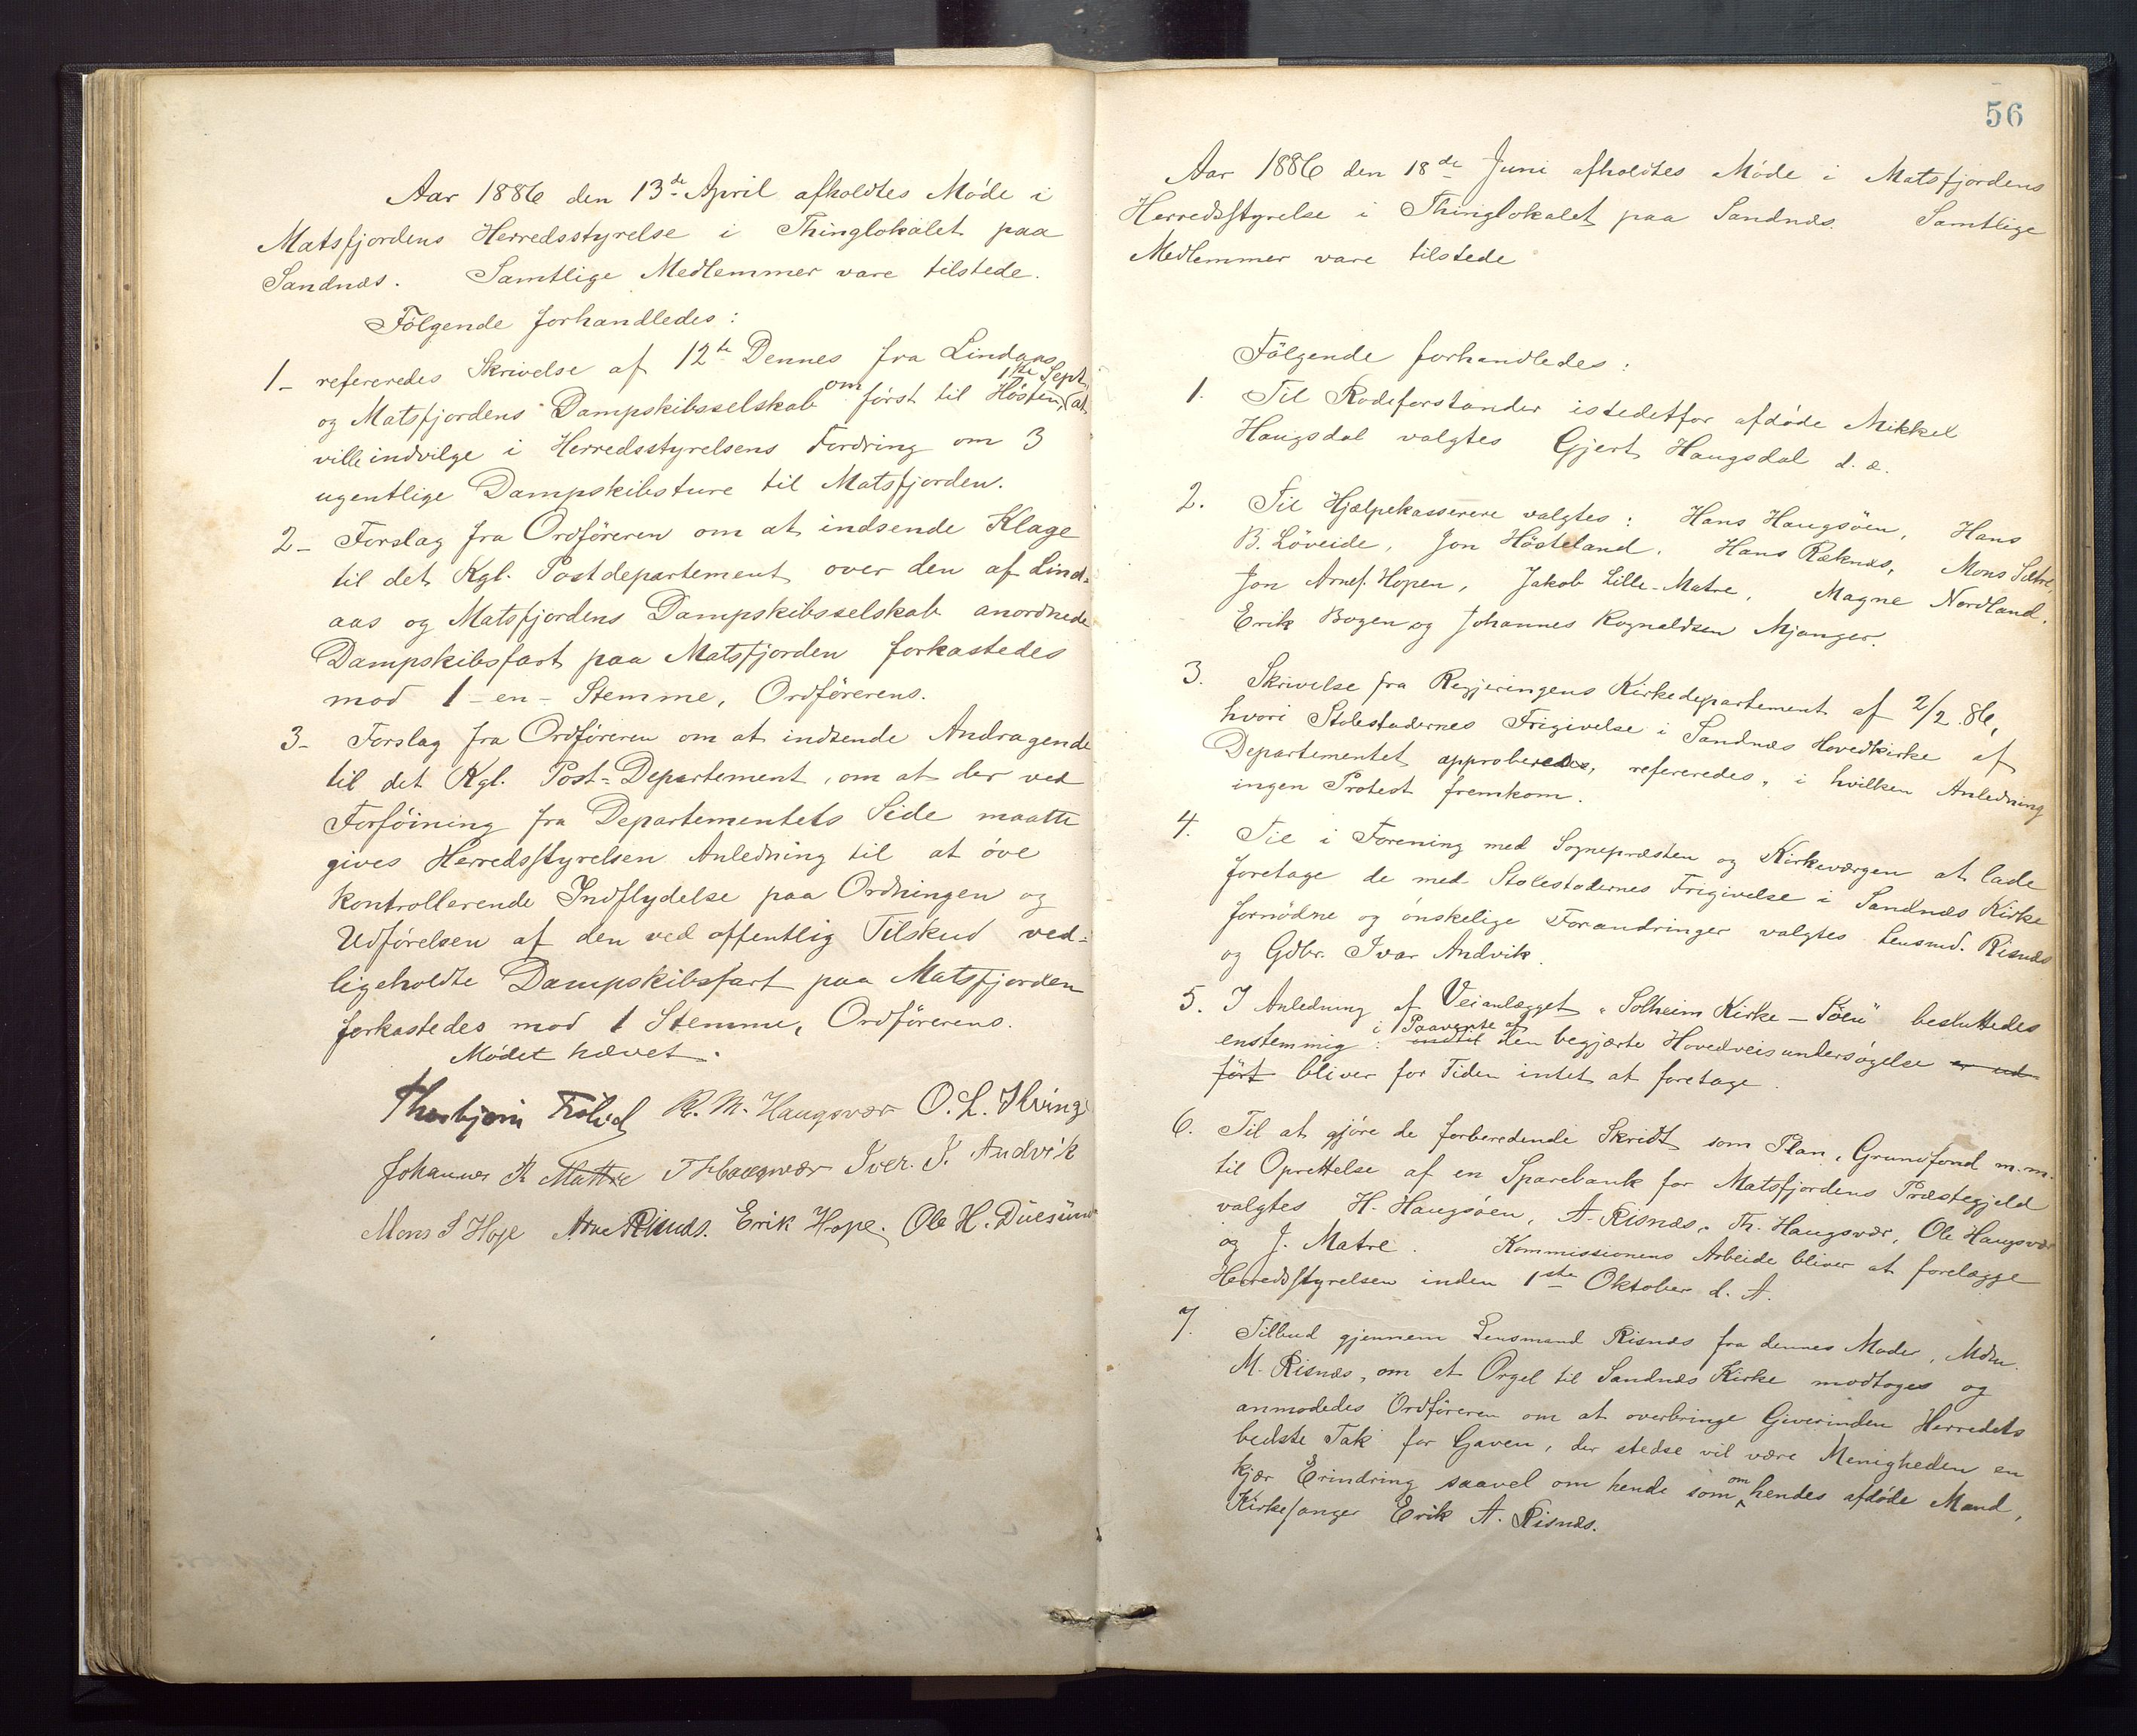 Aar 1886 den 13de April afholdtes Møde i
Matsfjordens Herredsstyrelse i Thinglokalet paa
Sandnæs. Samtlige Medlemmer vare tilstede.
Følgende forhandledes:
1- refereredes Skrivelse af 12te Dennes fra Lindaas
og Matsfjordens Dampskibsselskab om først til Høsten, 1ste Sept, at
ville indvilge i Herredsstyrelsens Fordring om 3
ugentlige Dampskibsture til Matsfjorden.
2- Forslag fra Ordføreren om at indsende Klage
til det Kgl. Postdepartement over den af Lind-
aas og Matsfjordens Dampskibsselskab anordnede
Dampskibsfart paa Matsfjorden forkastedes
mod 1 - en - Stemme, Ordførerens.
3- Forslag fra Ordføreren om at indsende Andragende
til det Kgl. Post-Departement, om at der ved
Forføining fra Departementets Side maatte
gives Herredsstyrelsen Anledning til at øve
kontrollerende Indflydelse paa Ordningen og
Udførelsen af den ved offentlig Tilskud ved-
ligeholdte Dampskibsfart paa Matsfjorden
forkastedes mod 1 Stemme, Ordførerens.
Mødet hævet.
Thorbjørn R. M. Haugsvær O. L.
Johannes A Mattre T Haugsvær Iver. J. Andvik
Mons S Hope Arne Risnæs. Erik Hope. Ole H. Duesund
56
Aar 1886 den 18de Juni afholdtes Møde i Matsfjordens
Herredsstyrelse i Thinglokalet paa Sandnæs. Samtlige
Medlemmer vare tilstede
Følgende forhandledes:
1. Til Rodeforstander istedetfor afdøde Mikkel
Haugsdal valgtes Gjert Haugsdal d. æ.
2. Til Hjælpekasserere valgtes: Hans Haugsøen, Hans
B. Løveide, Jon Høsteland, Hans Ræknæs, Mons Sætre,
Jon Arnes. Hopen, Jakob Lille-Matre, Magne Nordland,
Erik Bogen og Johannes Rognaldsen Mjanger.
3. Skrivelse fra Regjeringens Kirkedepartement af 2/2 86,
hvori Stolestadernes Frigivelse i Sandnæs Hovedkirke af
Departementet approberedes, refereredes, i hvilken Anledning
ingen Protest fremkom.
4. Til i Forening med Sognepræsten og Kirkeværgen at lade
foretage de med Stolestadernes Frigivelse i Sandnæs Kirke
fornødne og ønskelige Forandringer valgtes Lensmd. Risnæs
og Gdbr. Ivar Andvik.
5. I Anledning af Veianlægget "Solheim Kirke - Søen" besluttedes
enstemmig: indtil i Paavente af den begjærte Hovedveisundersøgelse er ud-
ført bliver for Tiden intet at foretage.
6. Til at gjøre de forberedende Skridt som Plan, Grundfond m.m.
til Oprettelse af en Sparebank for Matsfjordens Præstegjeld
valgtes H. Haugsøen, A. Risnæs, Th. Haugsvær, Ole Haugsvær
og J. Matre. Kommissionens Arbeide bliver at forelægge
Herredsstyrelsen inden 1ste Oktober d. A.
7. Tilbud gjennem Lensmand Risnæs fra dennes Moder, Mdm.
M. Risnæs, om et Orgel til Sandnæs Kirke modtoges og
anmodedes Ordføreren om at overbringe Giverinden Herredets
bedste Tak for Gaven, der stedse vil være Menigheden en
kjær Erindring saavel om hende som om hendes afdøde Mand,
Kirkesanger Erik A. Risnæs.